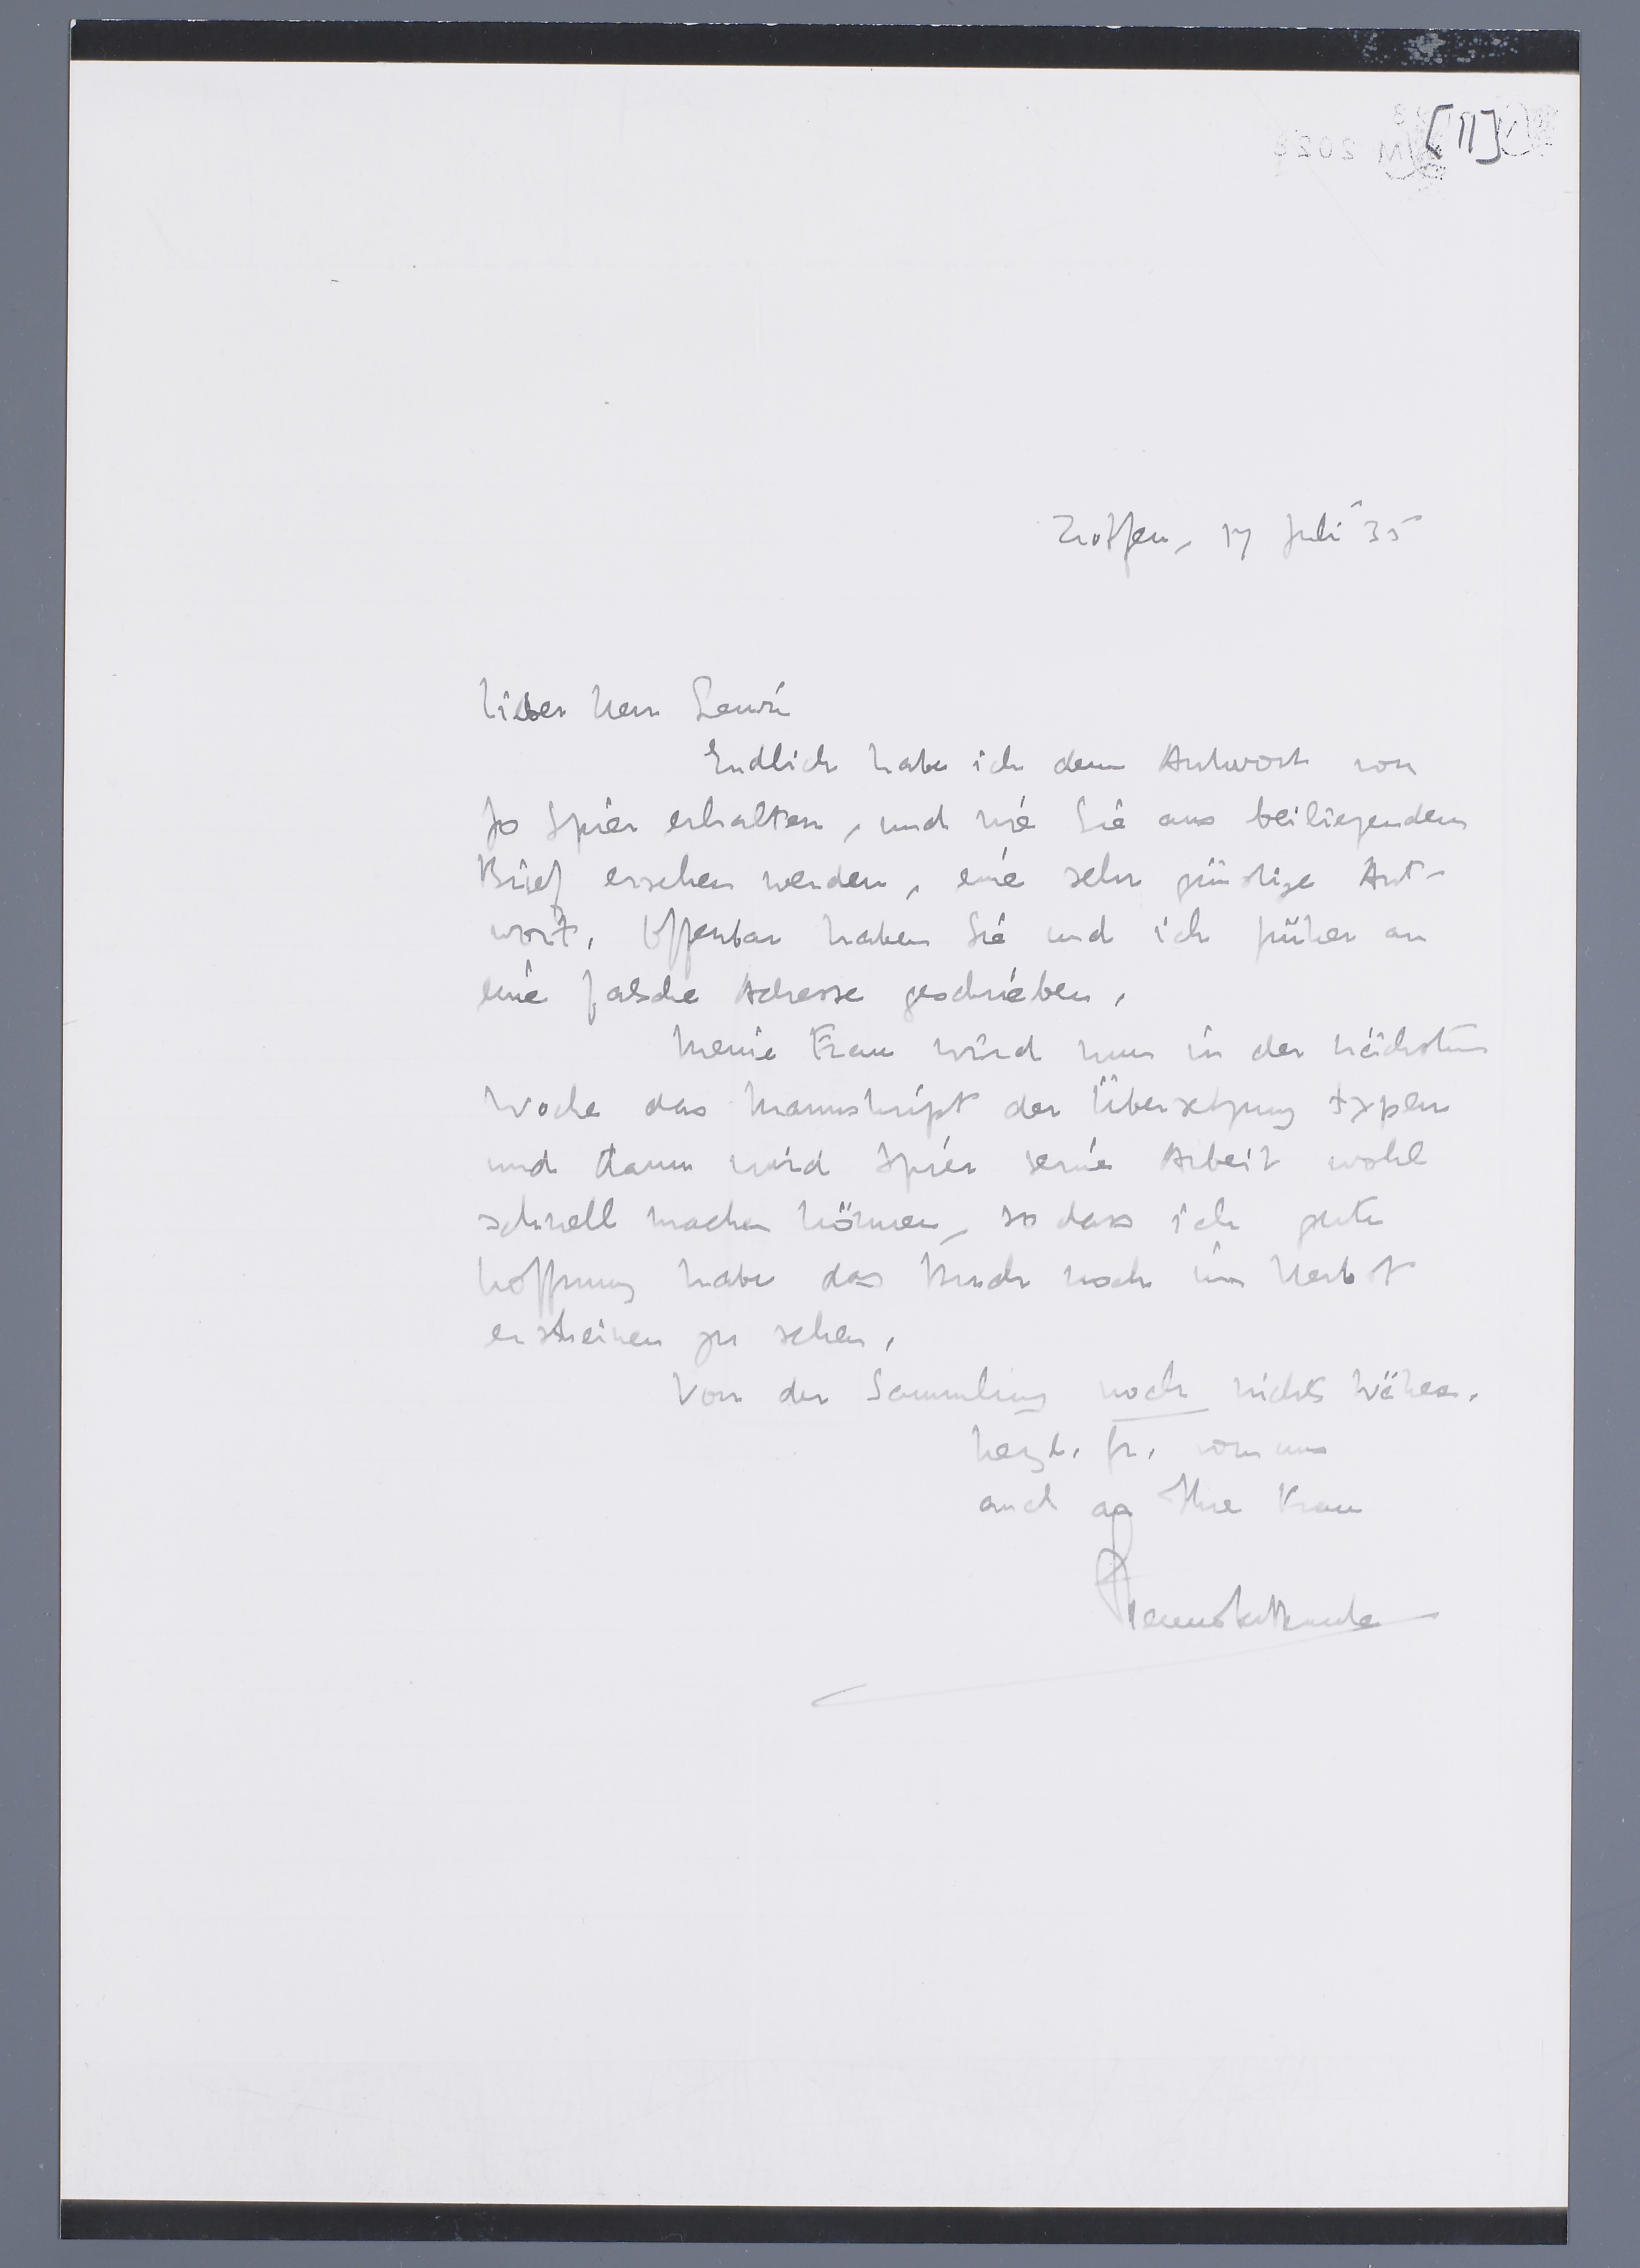 [11]
Zoffen, 17 Juli '35
Lieber Herr
Endlich habe ich denn Antwort von
Jo Spier erhalten, und wie Sie aus beiliegendem
Brief ersehen werden, eine sehr günstige Ant-
wort. Offenbar haben Sie und ich früher an
eine falsche Adresse geschrieben.
Meine Frau wird nun in der nächsten
Woche das Manuskript der Übersetzung typen
und dann wird Spier seine Arbeit wohl
schnell machen können, so dass ich gute
Hoffnung habe das Buch noch im Herbst
erscheinen zu sehen.
Von der Sammlung noch nichts Näheres.
Herzl. Gr. von uns
auch an Ihre Frau